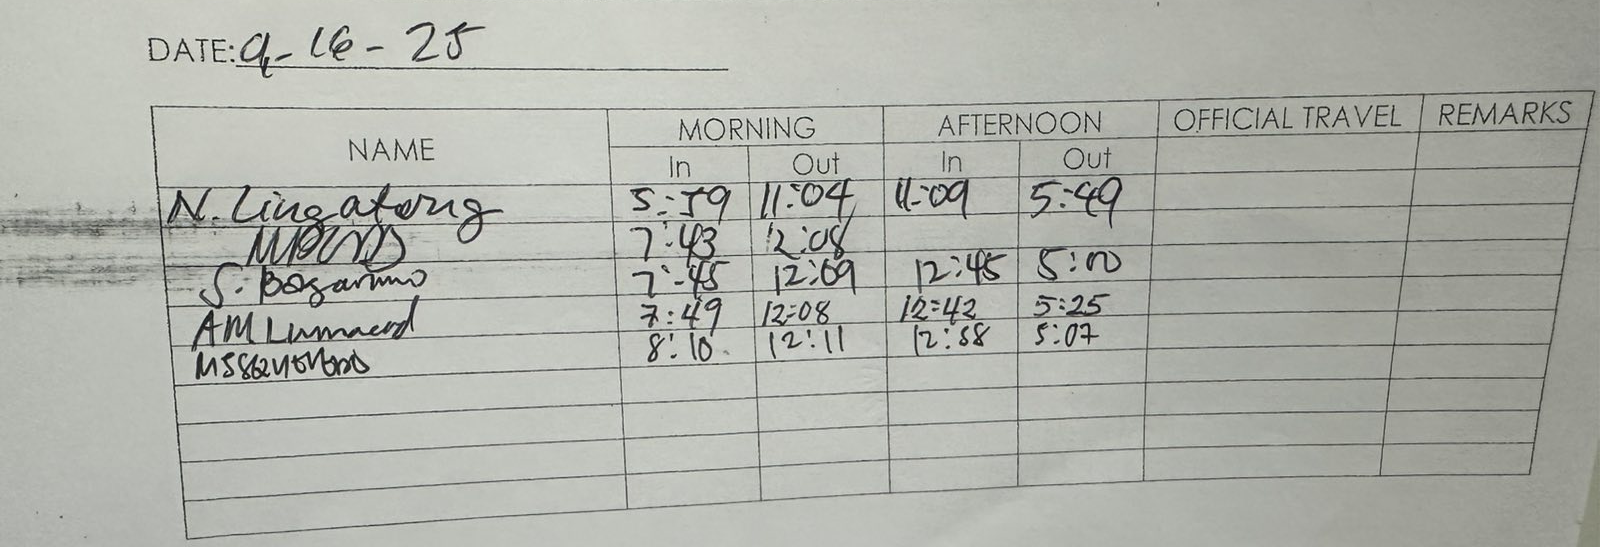 DATE: 9-16-25
NAME MORNING AFTERNOON OFFICIAL TRAVEL REMARKS
In Out In Out
N. Lingatong 5:59 11:04 11:09 5:49
7:43 12:08
S. 7:45 12:09 12:45 5:00
AM Lumacad 7:49 12:08 12:42 5:25
8:10 12:11 12:58 5:07